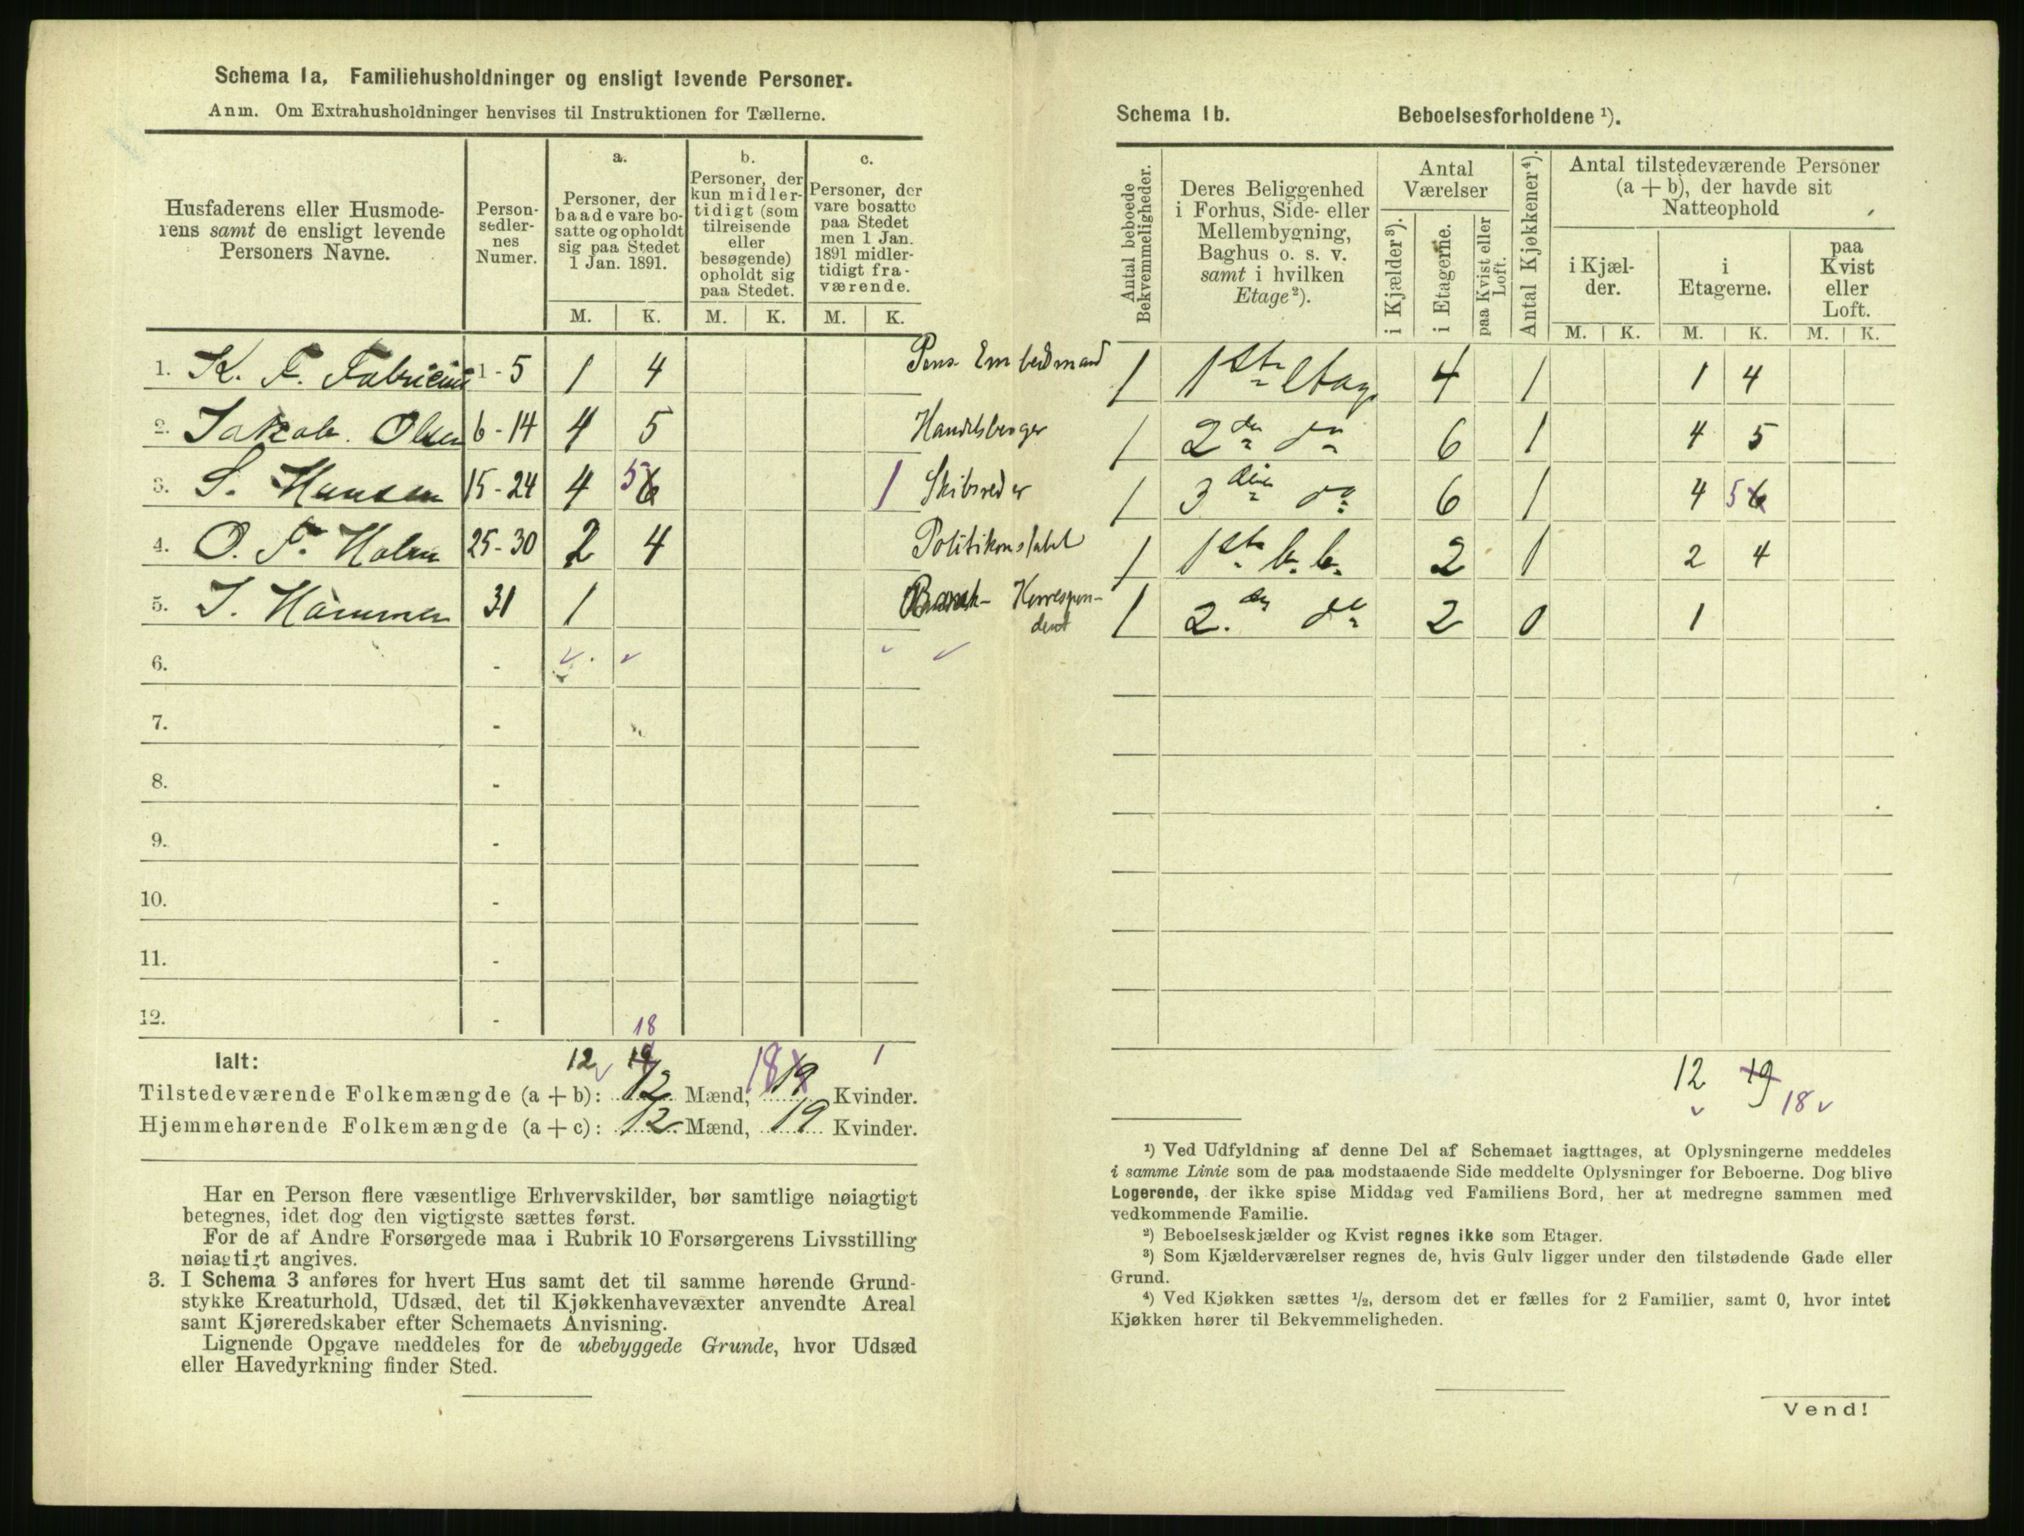 Schema 1a, Familiehusholdninger og ensligt levende Personer.
Anm. Om Extrahusholdninger henvises til Instruktionen for Tællerne.
Husfaderens eller Husmoderens samt de ensligt levende Personers Navne.
Personsedlernes Numer.
a. Personer, der baade vare bosatte og opholdt sig paa Stedet 1 Jan. 1891.
b. Personer, der kun midlertidigt (som tilreisende eller besøgende) opholdt sig paa Stedet.
c. Personer, der vare bosatte paa Stedet men 1 Jan. 1891 midlertidigt fraværende.
M. K. M. K. M. K.
1. K. F. Fabricius 1 - 5 1 4 Pens. Embedsmand
2. Jakob Olsen 6 - 14 4 5 Handelsborger
3. S. Hansen 15 - 24 4 5 6 1 Skibsreder
4. O. F. Holm 25 - 30 2 4 Politikonstabel
5. J. Hammer 31 1 Bank- Korrespondent
6. -
7. -
8. -
9. -
10. -
11. -
12. -
18
Ialt: 12 19 1
Tilstedeværende Folkemængde (a + b): 12 Mænd, 18 19 Kvinder.
Hjemmehørende Folkemængde (a + c): 12 Mænd, 19 Kvinder.
Har en Person flere væsentlige Erhvervskilder, bør samtlige nøiagtigt
betegnes, idet dog den vigtigste sættes først.
For de af Andre Forsørgede maa i Rubrik 10 Forsørgerens Livsstilling
nøiagtigt angives.
3. I Schema 3 anføres for hvert Hus samt det til samme hørende Grund-
stykke Kreaturhold, Udsæd, det til Kjøkkenhavevæxter anvendte Areal
samt Kjøreredskaber efter Schemaets Anvisning.
Lignende Opgave meddeles for de ubebyggede Grunde, hvor Udsæd
eller Havedyrkning finder Sted.
Schema 1b. Beboelsesforholdene ¹).
Antal beboede Bekvemmeligheder.
Deres Beliggenhed i Forhus, Side- eller Mellembygning, Baghus o. s. v. samt i hvilken Etage²).
Antal Værelser
i Kjælder³).
i Etagerne.
paa Kvist eller Loft.
Antal Kjøkkener⁴).
Antal tilstedeværende Personer (a + b), der havde sit Natteophold
i Kjælder.
i Etagerne.
paa Kvist eller Loft.
M. K. M. K. M. K.
1 1ste Etage 4 1 1 4
1 2den do 6 1 4 5
1 3die do 6 1 4 5 6
1 1ste b. b. 2 1 2 4
1 2den do 2 0 1
12 19
18
¹) Ved Udfyldning af denne Del af Schemaet iagttages, at Oplysningerne meddeles
i samme Linie som de paa modstaaende Side meddelte Oplysninger for Beboerne. Dog blive
Logerende, der ikke spise Middag ved Familiens Bord, her at medregne sammen med
vedkommende Familie.
²) Beboelseskjælder og Kvist regnes ikke som Etager.
³) Som Kjælderværelser regnes de, hvis Gulv ligger under den tilstødende Gade eller
Grund.
⁴) Ved Kjøkken sættes ½, dersom det er fælles for 2 Familier, samt 0, hvor intet
Kjøkken hører til Bekvemmeligheden.
Vend!